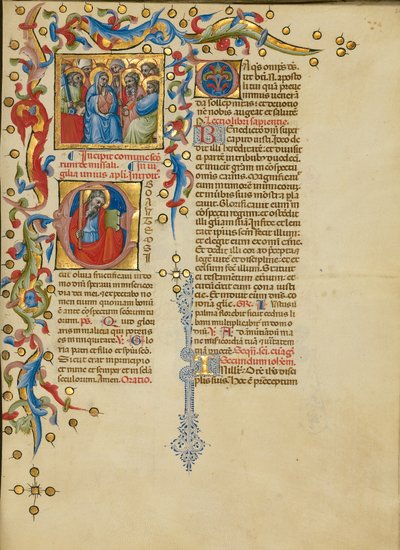 Incipit comune sco
rum de missali. In ui
gilia unius apli. Introit.
EGO AUTEM SI
cut oliua fructificaui in do
mo dni speraui in misericor
dia dei mei. et expectabo no
men tuum quoniam bonu
e ante conspectum scorum tu
orum. ps. Quid glo
riaris in malitia qui potens
es in iniquitate. V. Glo
ria patri et filio et spui sco.
Sicut erat in principio
et nunc et semper et in scla
seculorum. Amen. Oratio.
Da qs omps ds
ut bti N. aposto
li tui quam preue
nimus uenera
da sollempnitas et deuotio
ne nobis augeat et salute.
Lectio libri sapientie.
Benedictio dni super
caput iusti. Ideo de
dit illi hereditate et diuisit
ei parte in tribubus duodeci.
et inuenit gram in conspectu
omnis carnis. Magnificaui
eum in timore inimicorum
et in uerbis suis monstra pla
cauit. Glorificauit eum in
conspectu regum et ostedit
illi gloriam sua. In fide et leni
tate ipsius scm fecit illum.
et elegit eum ex omi carne.
Et dedit illi coram precepta
lege uite et discipline. et ex
celsum fec illum. Statuit
ei testamentum eternu. et
circumcinxit eum zona iusti
cie. Et induit eum dns co
rona glie. Gr. Iustus ut
palma florebit sicut cedrus li
bani multiplicabitur in domo
dni. V. Ad annuntiandum ma
ne misericordia tua et ueritatem
tua per nocte. Sequen. sci. euagl
Secundum iohem.
In illo t. Dix ihs disci
plis suis. Hoc e preceptum